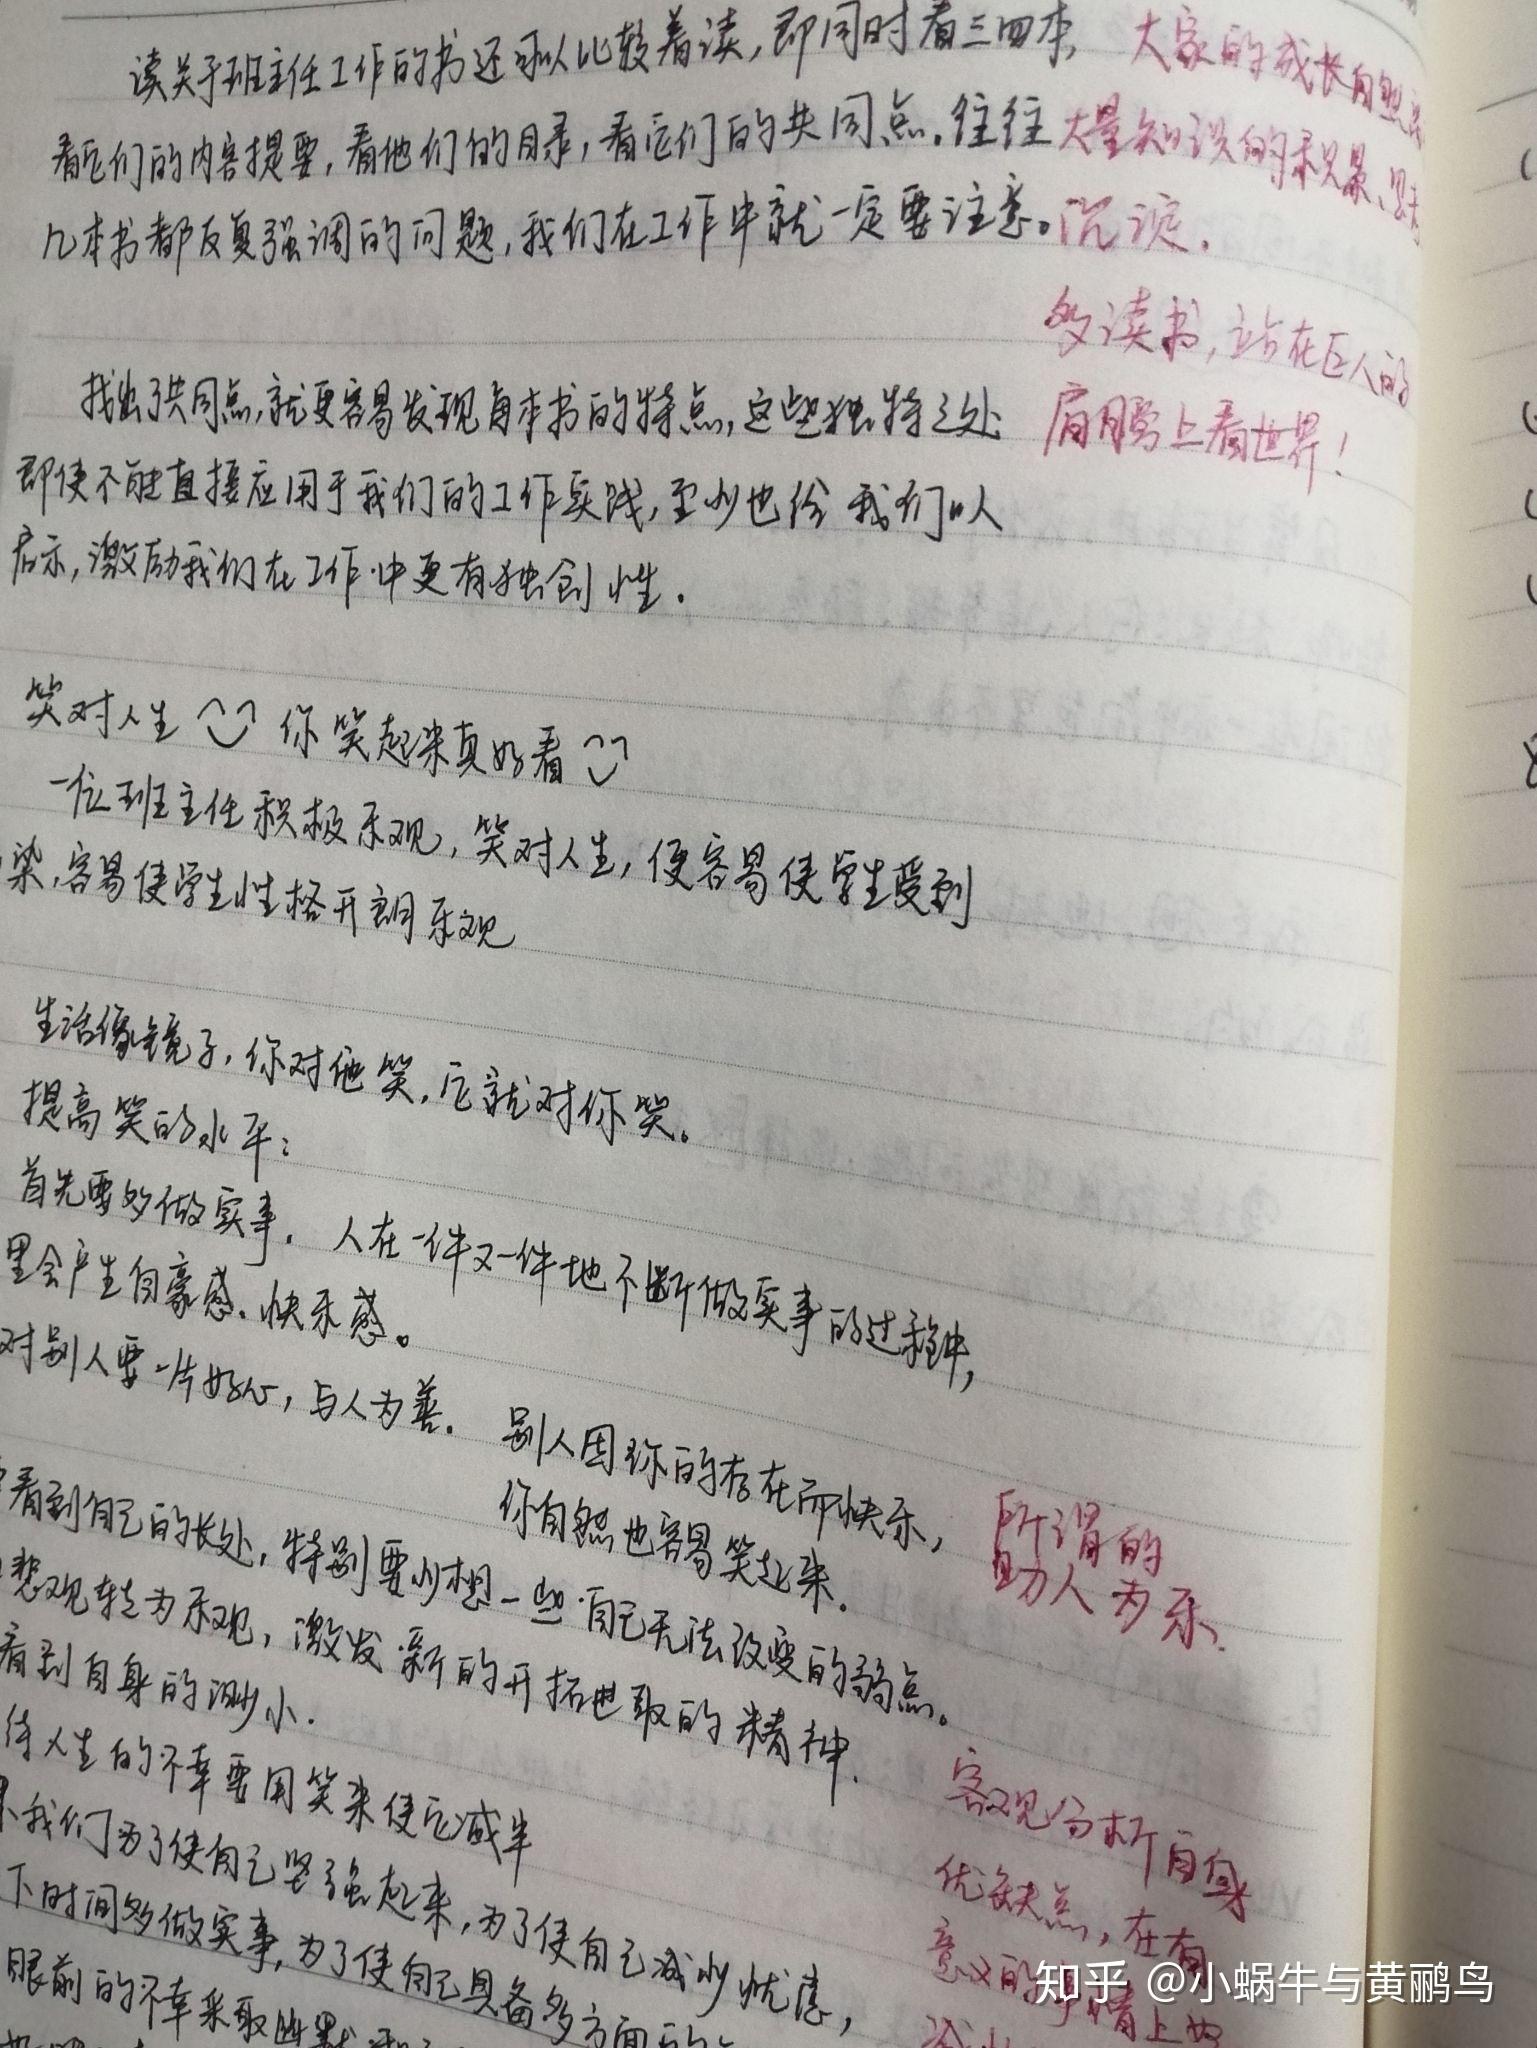 读关于班主任工作的书还可以比较着读，即同时看三四本，
看它们的内容提要，看他们的目录，看它们的共同点。往往
几本书都反复强调的问题，我们在工作中就一定要注意。
大家的成长自然
大量知识的积累、思考
沉淀．
多读书，站在巨人的
肩膀上看世界！
找出了共同点，就更容易发现每本书的特点，这些独特之处
即使不能直接应用于我们的工作实践，至少也给我们以
启示，激励我们在工作中更有独创性．
笑对人生 你笑起来真好看
一位班主任积极乐观，笑对人生，便容易使学生受到
染，容易使学生性格开朗乐观
生活像镜子，你对他笑，它就对你笑。
提高笑的水平：
首先要多做实事．人在一件又一件地不断做实事的过程中，
里会产生自豪感．快乐感。
对别人要一片好心，与人为善．别人因你的存在而快乐，
你自然也容易笑起来．
所谓的
助人为乐．
看到自己的长处，特别要少想一些自己无法改变的弱点。
悲观转为乐观，激发新的开拓进取的精神．
看到自身的渺小．
待人生的不幸要用笑来使它减半
我们为了使自己坚强起来，为了使自己减少忧虑，
下时间多做实事，为了使自己具备多方面的
眼前的不幸采取幽默
客观分析自身
优缺点，在有
意义的事情上
知乎 @小蜗牛与黄鹂鸟